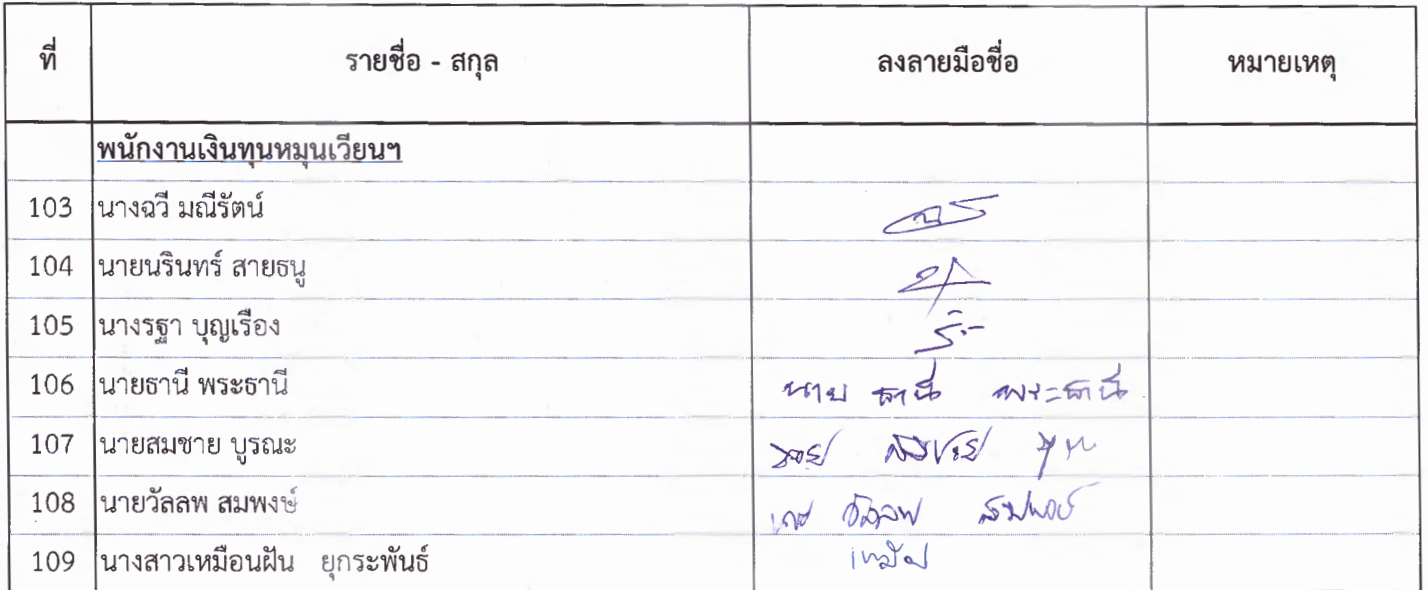 ที่ รายชื่อ - สกุล ลงลายมือชื่อ หมายเหตุ
พนักงานเงินทุนหมุนเวียนฯ
103 นางฉวี มณีรัตน์
104 นายนรินทร์ สายธนู
105 นางรฐา บุญเรือง
106 นายธานี พระธานี นาย ธานี พระธานี
107 นายสมชาย บูรณะ
108 นายวัลลพ สมพงษ์ วัลลพ สมพงษ์
109 นางสาวเหมือนฝัน ยุกระพันธ์